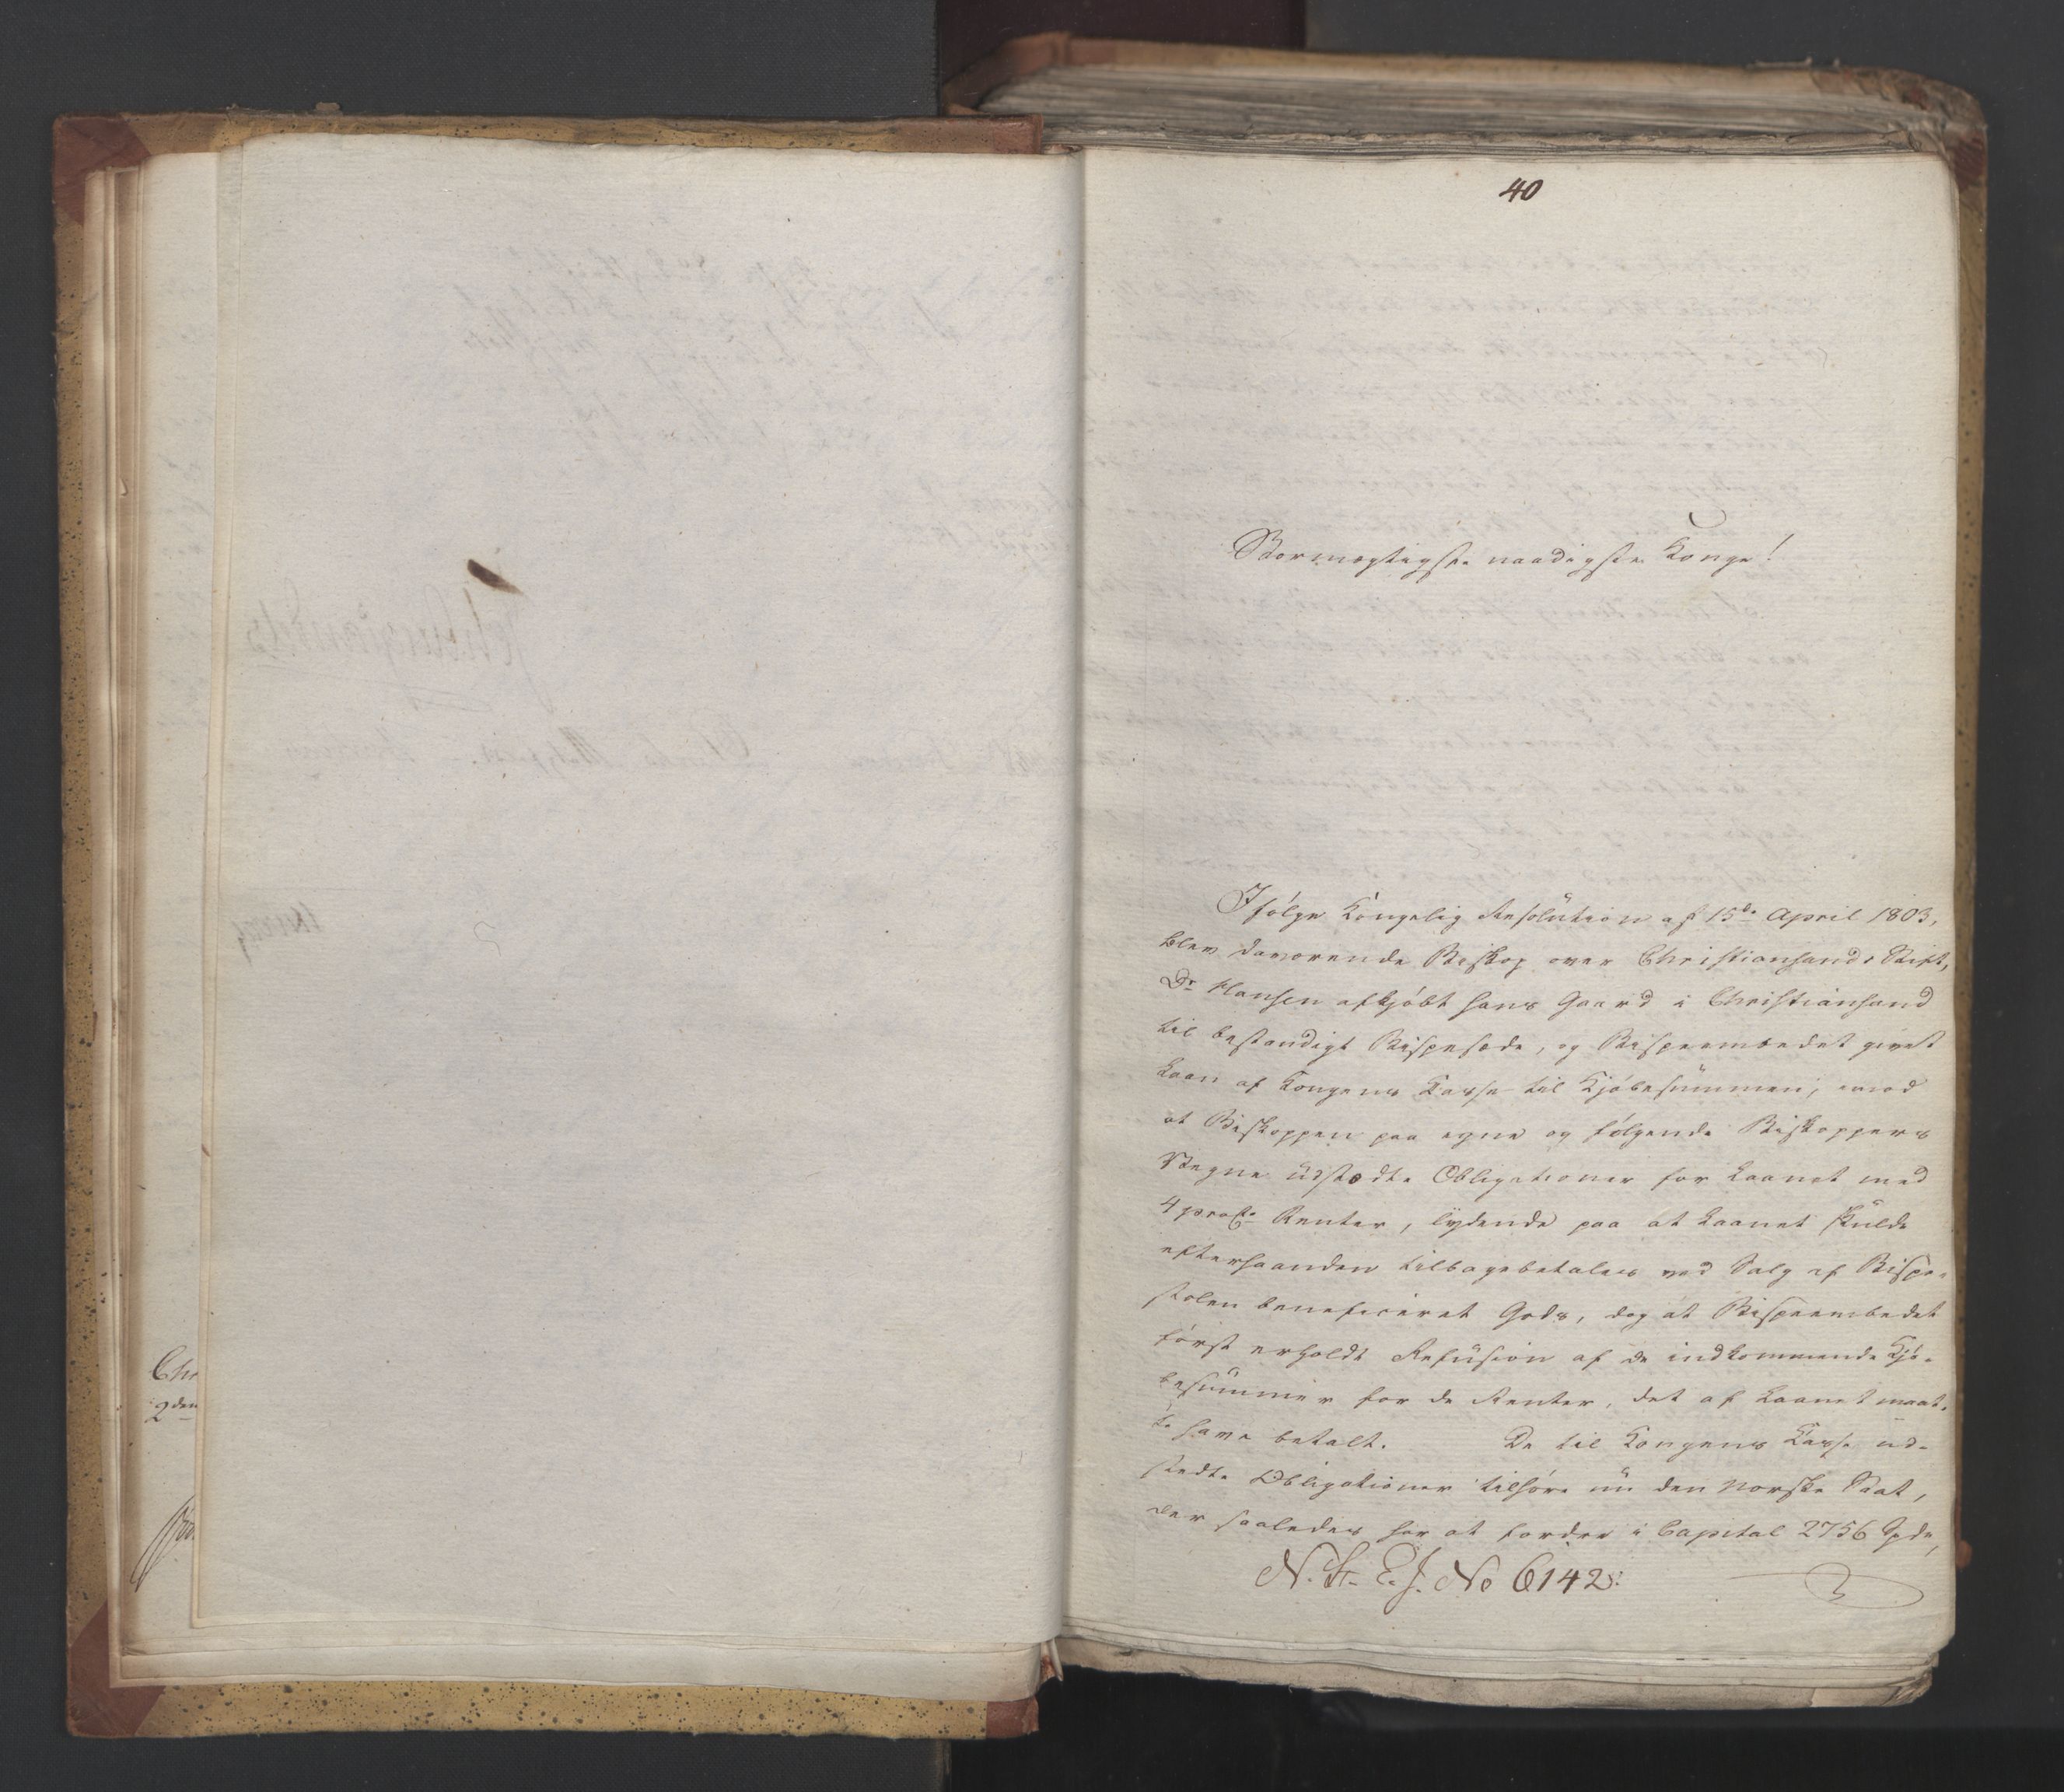 40
Stormægtigste naadigste Konge!
Ifølge Kongelig Resolution af 15de April 1803,
blev daværende Biskop over Christiansands Stift,
Dr Hansen afkjøbt hans Gaard i Christiansand
til bestandigt Bispesæde, og Bispeembedet givet
Laan af Kongens Kasse til Kjøbesummen, imod
at Biskoppen paa egne og følgende Biskoppers
Vegne udstædte Obligationer for Laanet med
4 proCto Renter, lydende paa at Laanet skulde
efterhaanden tilbagebetales ved Salg af Bispe-
stolen beneficeret Gods, dog at Bispeembedet
først erholdt Refusion af de indkommende Kjø-
besummer for de Renter, det af Laanet maat-
te have betalt. De til Kongens Kasse ud-
stedte Obligationer tilhøre nu den norske Stat,
der saaledes har at fordre i Capital 2756 Spd,
N. St. E. J. No 6142
Chr
2den